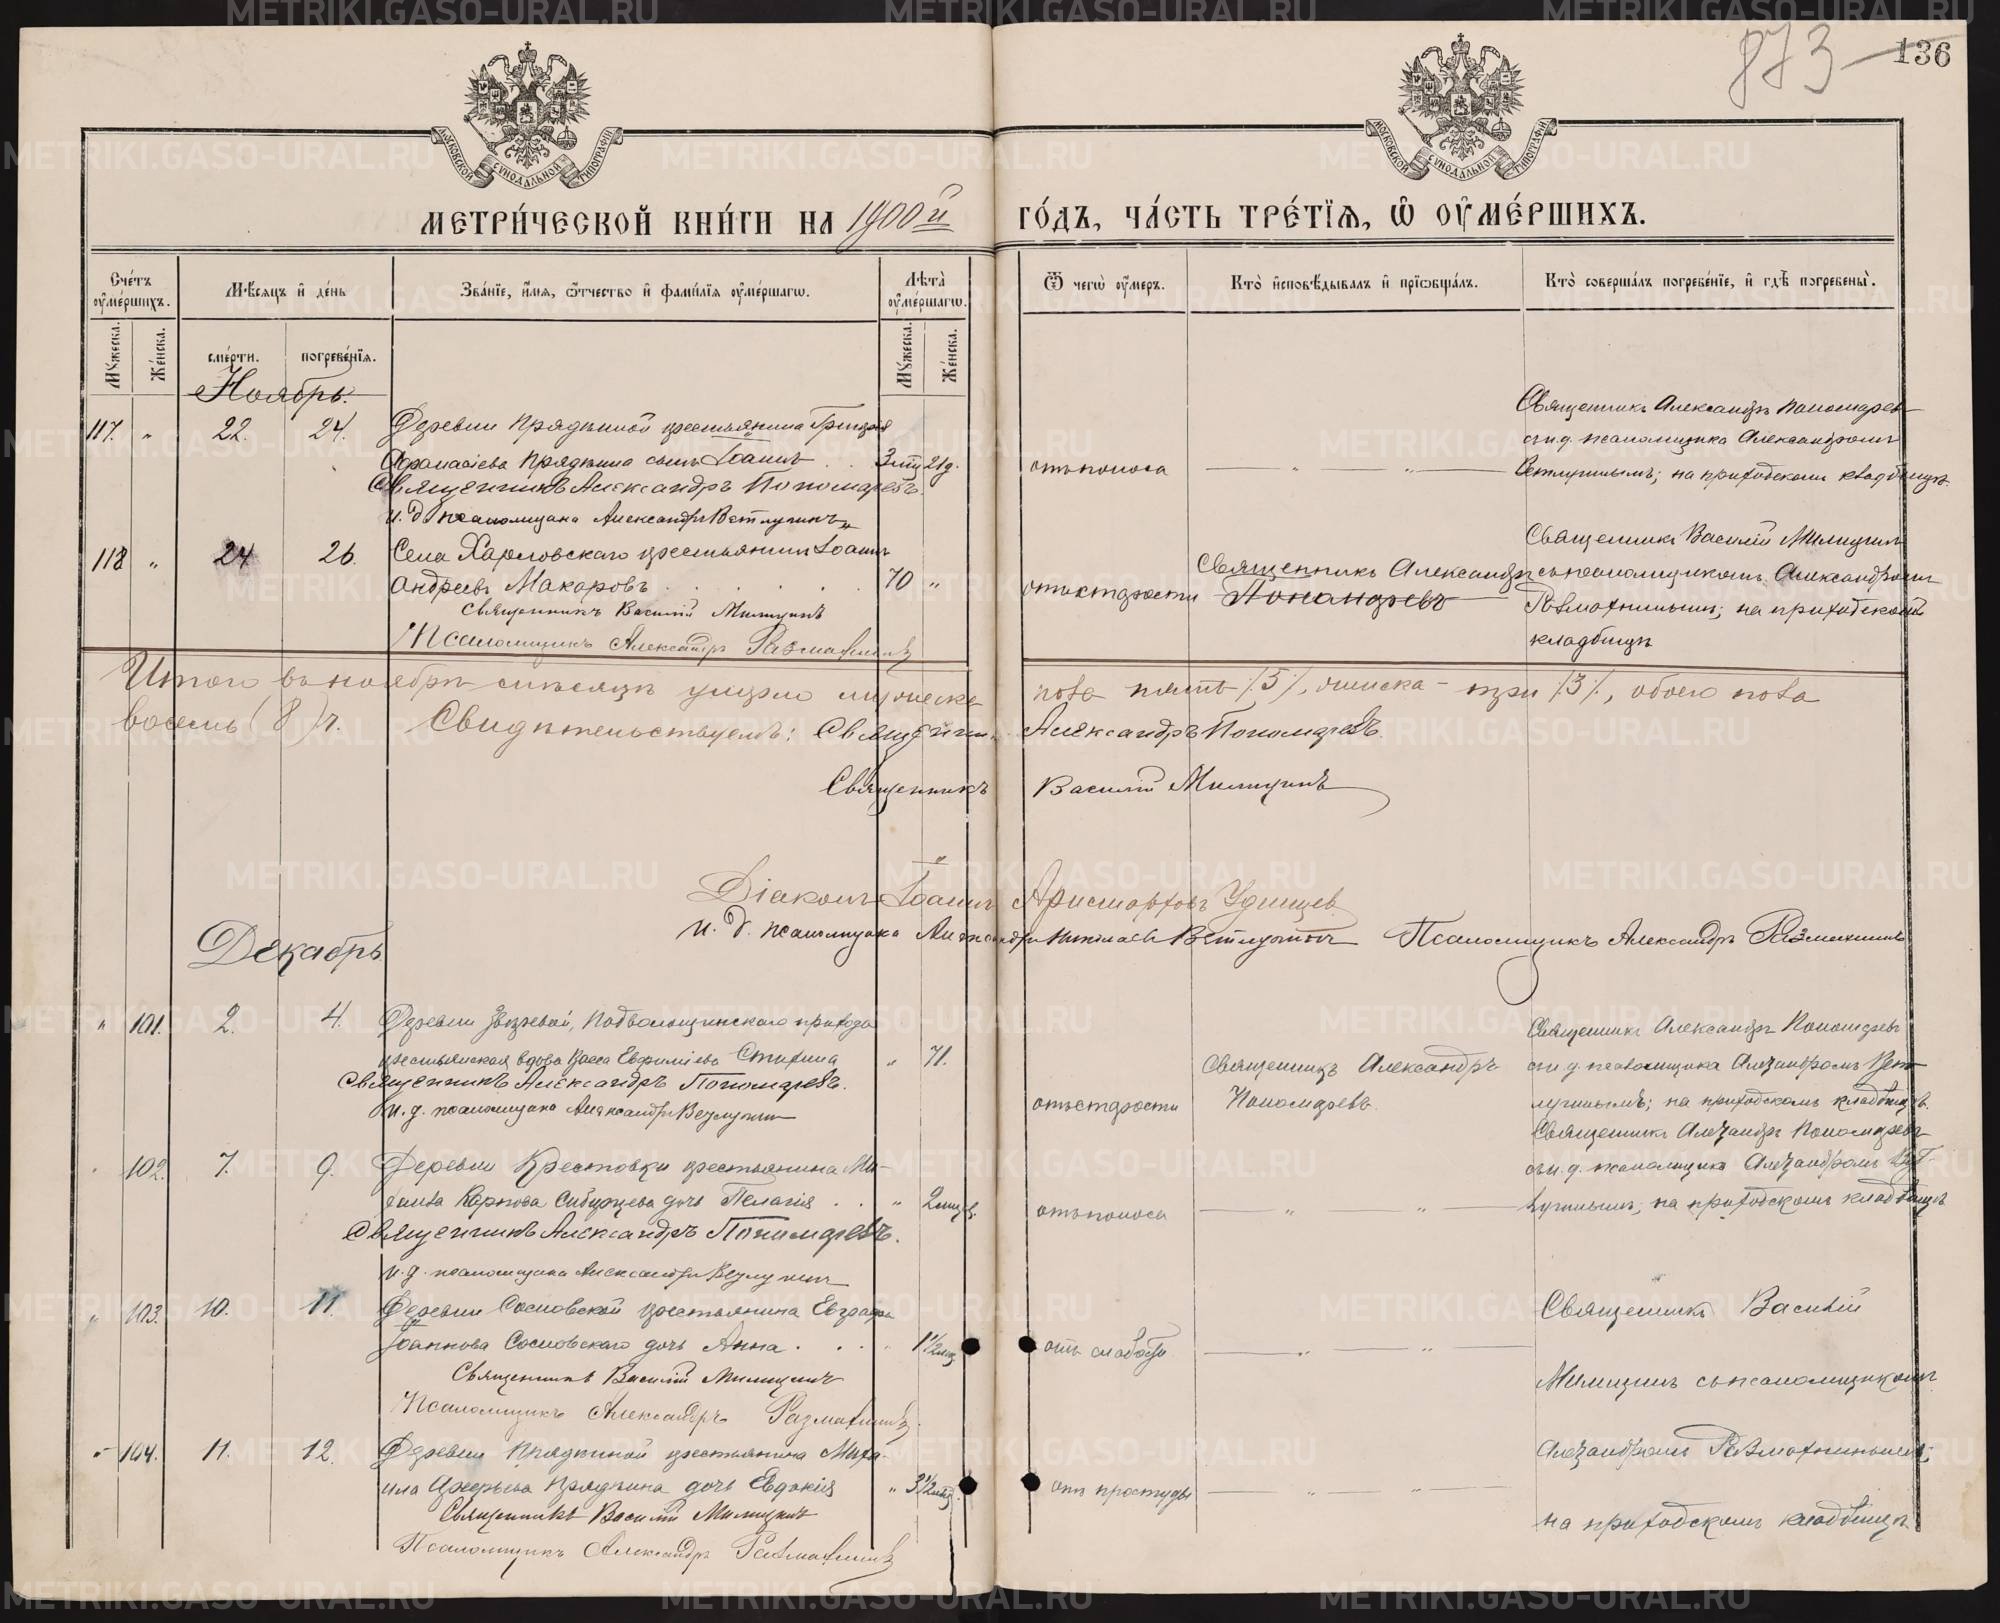 873
136
МОСКОВСКОЙ СѴНОДАЛЬНОЙ ТИПОГРАФІИ
МОСКОВСКОЙ СѴНОДАЛЬНОЙ ТИПОГРАФІИ
МЕТРИ́ЧЕСКОЙ КНИ́ГИ НА 1900й ГО́ДЪ, ЧА́СТЬ ТРЕ́ТЇѦ, Ѿ ОУ҆МЕ́РШИХЪ.
Счетъ оумершихъ.
Мѣсяцъ и день
Званіе, имя, отчество и фамилія оумершагω.
Лѣта оумершагω.
Ѿ чегω оумеръ.
Кто исповѣдывалъ и пріωбщалъ.
Кто совершалъ погребеніе, и гдѣ погребены.
Мужеска.
Женска.
смерти.
погребенія.
Мужеска.
Женска.
Ноябрь.
117. „ 22. 24. Деревни Прядкиной крестьянина Григорія
Афанасіева Прядкина сынъ Іоаннъ . . 3 мѣс 21 д. отъ поноса — „ — „ —
Священникъ Александръ Пономаревъ.
и. д. псаломщика Александръ Ветлугинъ
Священникъ Александръ Пономарев
с и. д. псаломщика Александромъ
Ветлугинымъ; на приходскомъ кладбищѣ.
118 „ 24 26. Села Харловскаго крестьянинъ Іоаннъ
Андреевъ Макаровъ . . . . 70 „ отъ старости
Священникъ Василій Милицинъ
Псаломщикъ Александръ Размахнинъ
Священникъ Александръ
Понамаревъ
Священникъ Василій Милицинъ
съ псаломщикомъ Александромъ
Размахнинымъ; на приходскомъ
кладбищѣ
Итого въ ноябрѣ мѣсяцѣ умерло мужеска пола пять /5/, женска – три /3/, обоего пола
восемь (8) ч. Свидѣтельствуемъ: Священникъ Александръ Пономаревъ.
Священникъ Василій Милицинъ
Діаконъ Іоаннъ Аристарховъ Удинцев
и. д. псаломщика Александръ Николаев Ветлугинъ Псаломщикъ Александръ Размахнинъ
Декабрь
„ 101. 2. 4. Деревни Зыряевой, Подволошинскаго прихода
крестьянская вдова Васса Евфиміева Стихина „ 71. отъ старости
Священникъ Александръ Пономаревъ.
и. д. псаломщика Александръ Ветлугин
Священникъ Александръ
Пономаревъ.
Священникъ Александръ Пономаревъ
с и. д. псаломщика Александромъ Вет
лугинымъ; на приходскомъ кладбищѣ.
102. 7. 9. Деревни Крестовки крестьянина Ми-
хаила Карпова Сибирцева дочь Пелагія . . „ 2 мѣсяц. отъ поноса — „ — „ —
Священникъ Александръ Пономаревъ.
и. д. псаломщика Александръ Ветлугин
Священникъ Александръ Пономаревъ
с и. д. псаломщика Александромъ Вет-
лугинымъ; на приходскомъ кладбищѣ
„ 103. 10. 11. Деревни Сосновской крестьянина Евграфа
Іоаннова Сосновскаго дочь Анна . . . „ 1 1/2 мѣс отъ слабости — „ — „ —
Священникъ Василій Милицинъ
Псаломщикъ Александръ Размахнинъ.
Священникъ Василій
Милицинъ съ псаломщикомъ
104. 11. 12. Деревни Прядкиной крестьянина Миха-
ила Прядкина дочь Евдокія „ 3 1/2 мѣс. отъ простуды — „ — „ —
Священникъ Василій Милицинъ
Псаломщикъ Александръ Размахнинъ
Александромъ Размахнинымъ;
на приходскомъ кладбищѣ.
METRIKI.GASO-URAL.RU